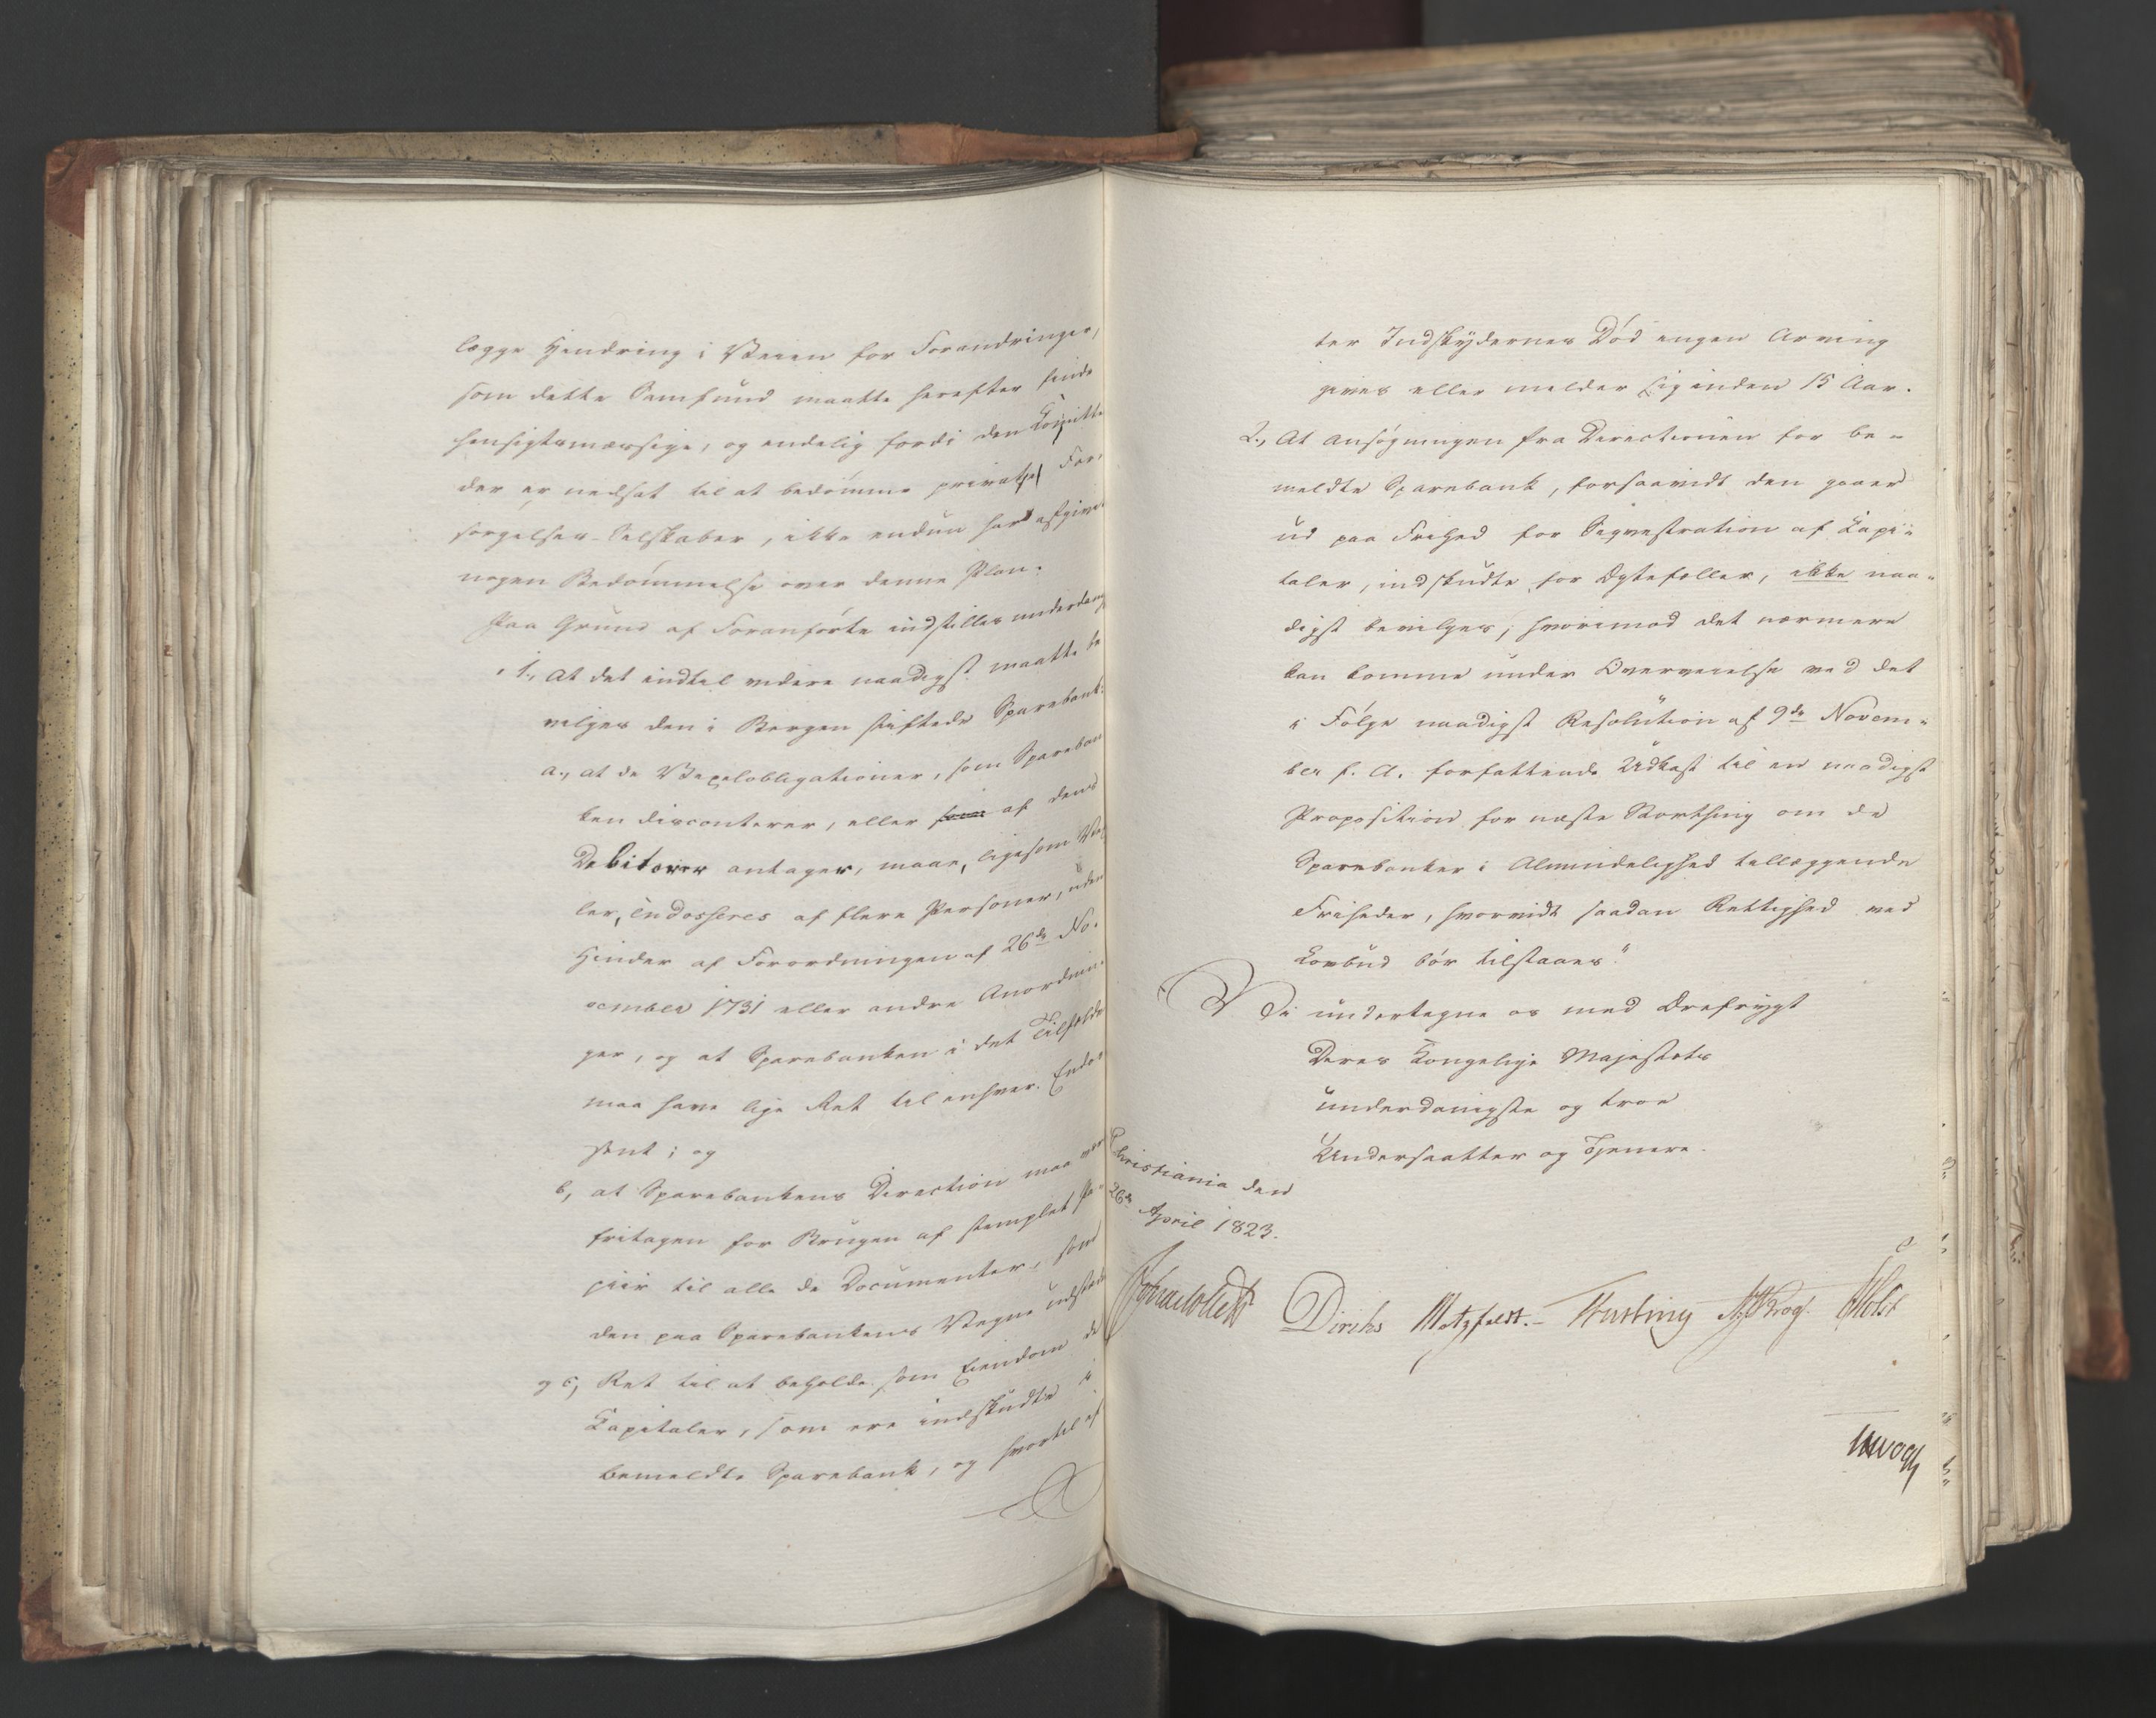 lægge Hindring i Veien for Forandringer,
som dette Samfund maatte herefter finde
hensigtsmæssige, og endelig fordi den Comitte
der er nedsat til at bedømme private For¬
sørgelses-Selskaber, ikke endnu har afgivet
nogen Bedømmelse over denne Plan.
Paa Grund af Foranførte indstilles underdanigst
1., At det indtil videre naadigst maatte be
vilges den i Bergen stiftede Sparebank:
a., at de Vexelobligationer, som Spareban
ken disconterer, eller af dens
Debitorer antager, maae, ligesom Vex
ler, endosseres af flere Personer, uden
Hinder af Forordningen af 26de No¬
vember 1731 eller andre Anordnin¬
ger, og at Sparebanken i det Tilfælde
maa have lige Ret til enhver Endos¬
sent; og
b, at Sparebankens Direction maa være
fritagen for Brugen af stemplet Pa¬
piir til alle de Documenter, som
den paa Sparebankens Vegne udsteder
og c, Ret til at beholde som Eiendom de
Capitaler, som ere indskudte i
bemeldte Sparebank, og hvortil ef
ter Indskydernes Død ingen Arving
gives eller melder sig inden 15 Aar.
2., At Ansøgningen fra Directionen for be¬
meldte Sparebank, forsaavidt den gaaer
ud paa Frihed for Seqvestration af Capi¬
taler, indskudte for Ægtefæller, ikke naa¬
digst bevilges; hvorimod det nærmere
kan komme under Overveielse ved det
i Følge naadigst Resolution af 9de Novem¬
ber f. A. forfattende Udkast til en naadigst
Proposition for næste Storthing om de
Sparebanker i Almindelighed tillæggende
Friheder, hvorvidt saadan Rettighed ved
Lovbud bør tilstaaes."
Vi undertegne os med Ærefrygt
Deres Kongelige Majestæts
underdanigste og troe
Undersaatter og Tjenere.
Christiania den
26de April 1823.
Diriks Motzfeldt. Krog. Holst
Vogt